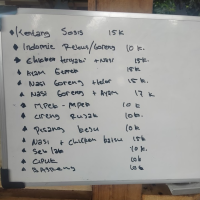 Kentang Sosis 15k
Indomie Rebus/Goreng 10k.
Chicken teriyaki + Nasi 15k.
Ayam Geprek 15k.
Nasi Goreng + telor 15k.
Nasi Goreng + Ayam 17k.
Mpek-Mpek 10k
Cireng Rujak 10k.
Pisang keju 10k
Nasi + Chicken 15k
Seblak 10k.
Cilok 10k
10k